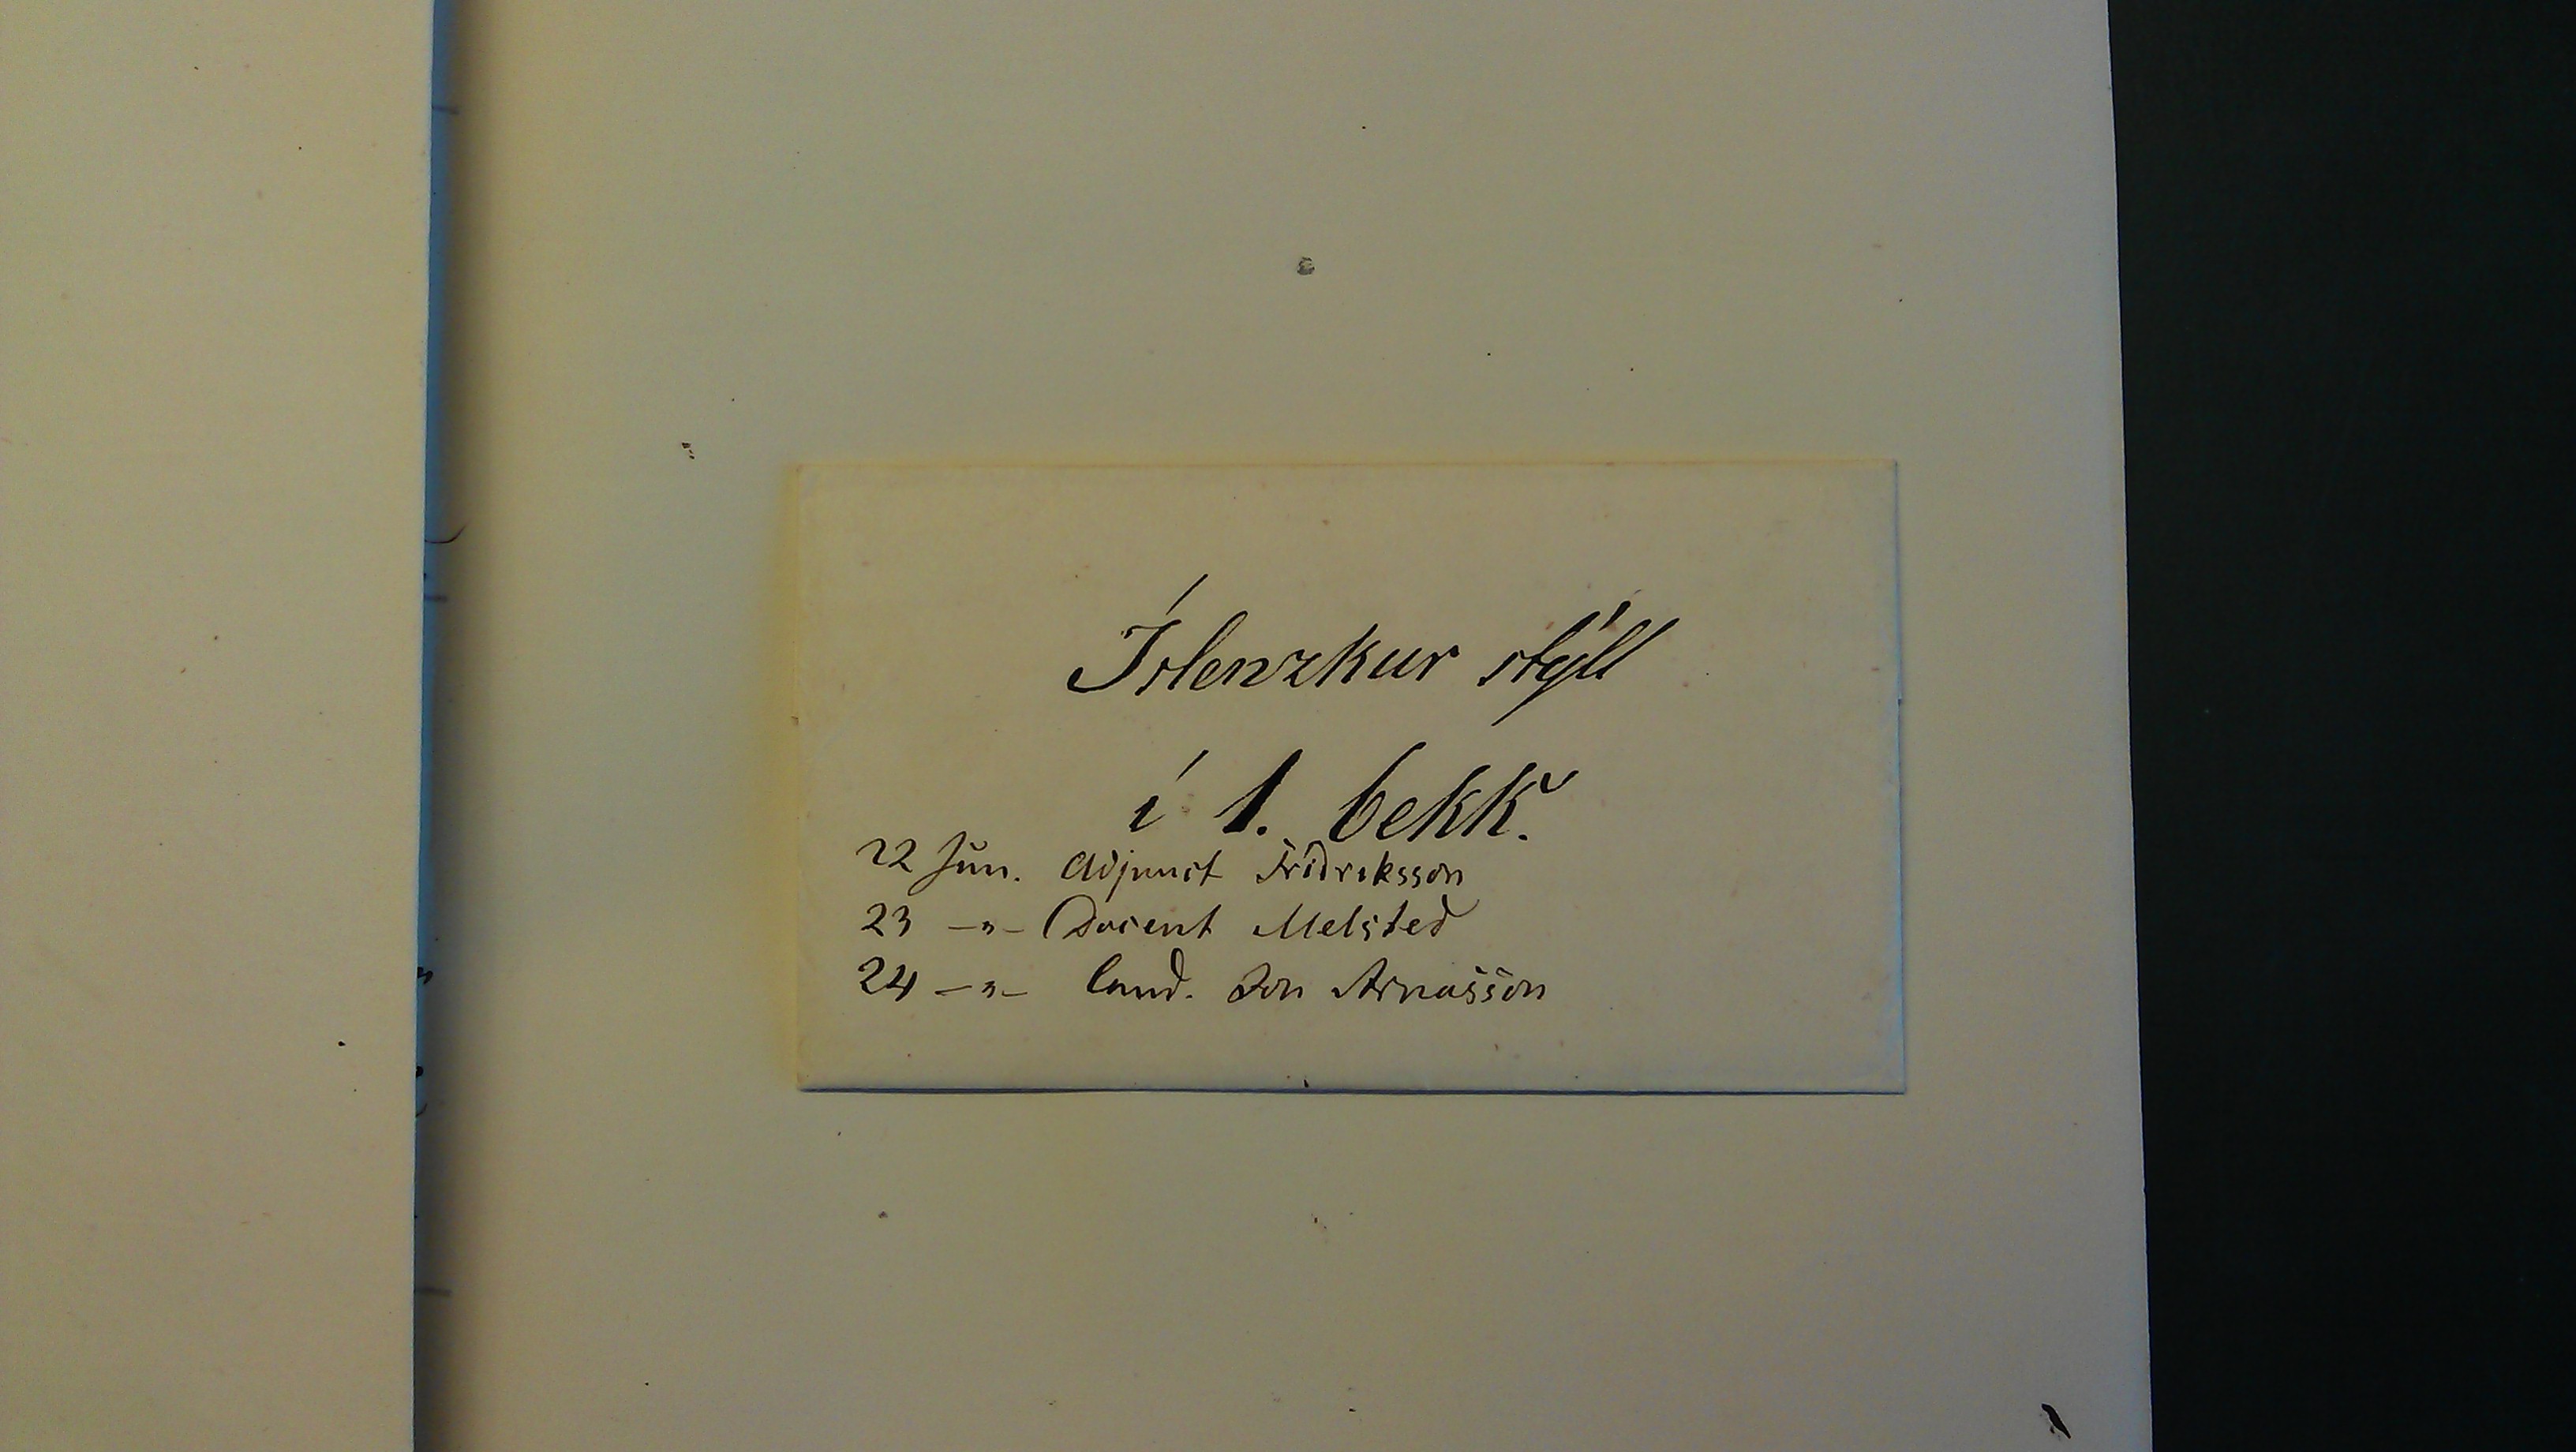 Íslenzkur stýll
í 1. bekk.
22 Jún. Adjunct Fridriksson
23 -„- Docent Melsted
24 -„- Cand. Jon Arnasson